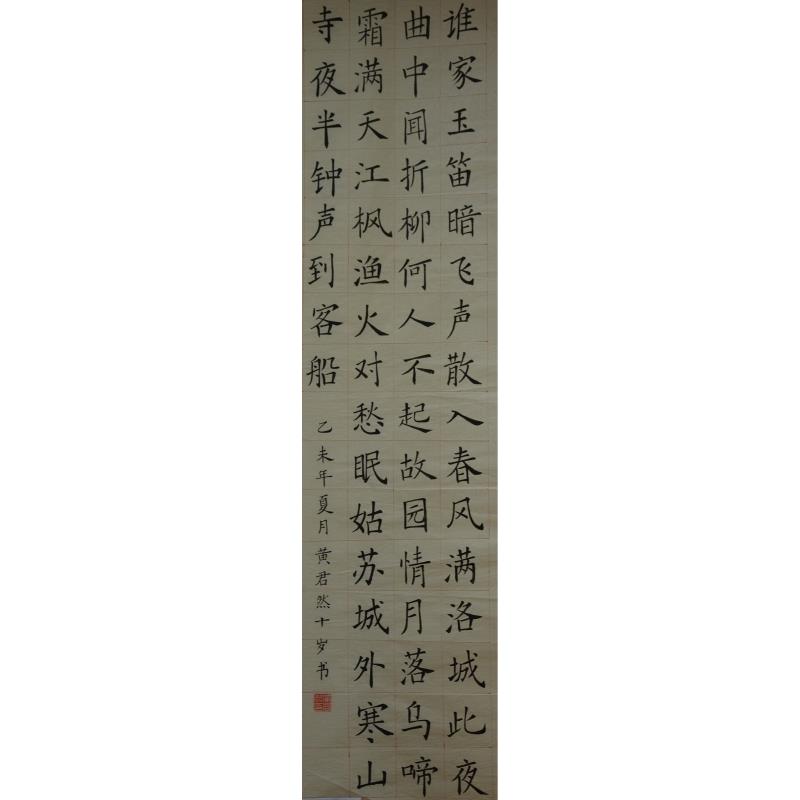 谁家玉笛暗飞声散入春风满洛城此夜
曲中闻折柳何人不起故园情月落乌啼
霜满天江枫渔火对愁眠姑苏城外寒山
寺夜半钟声到客船
乙未年夏月黄君然十岁书